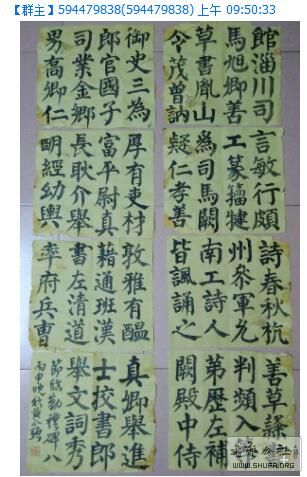 【群主】594479838(594479838) 上午 09:50:33
館淄川司
馬旭卿善
草書胤山
令茂曾訥
言敏行頗
工篆籀犍
為司馬闕
疑仁孝善
詩春秋杭
州參軍允
南工詩人
皆諷誦之
善草隸
判頻入
第歷左補
闕殿中侍
御史三為
郎官國子
司業金鄉
男高卿仁
厚有吏材
富平尉真
長耿介舉
明經幼輿
敦雅有醞
藉通班漢
書左清道
率府兵曹
真卿舉進
士校書郎
舉文詞秀
節臨勤禮碑
丙申
WWW.SHUFA.ORG